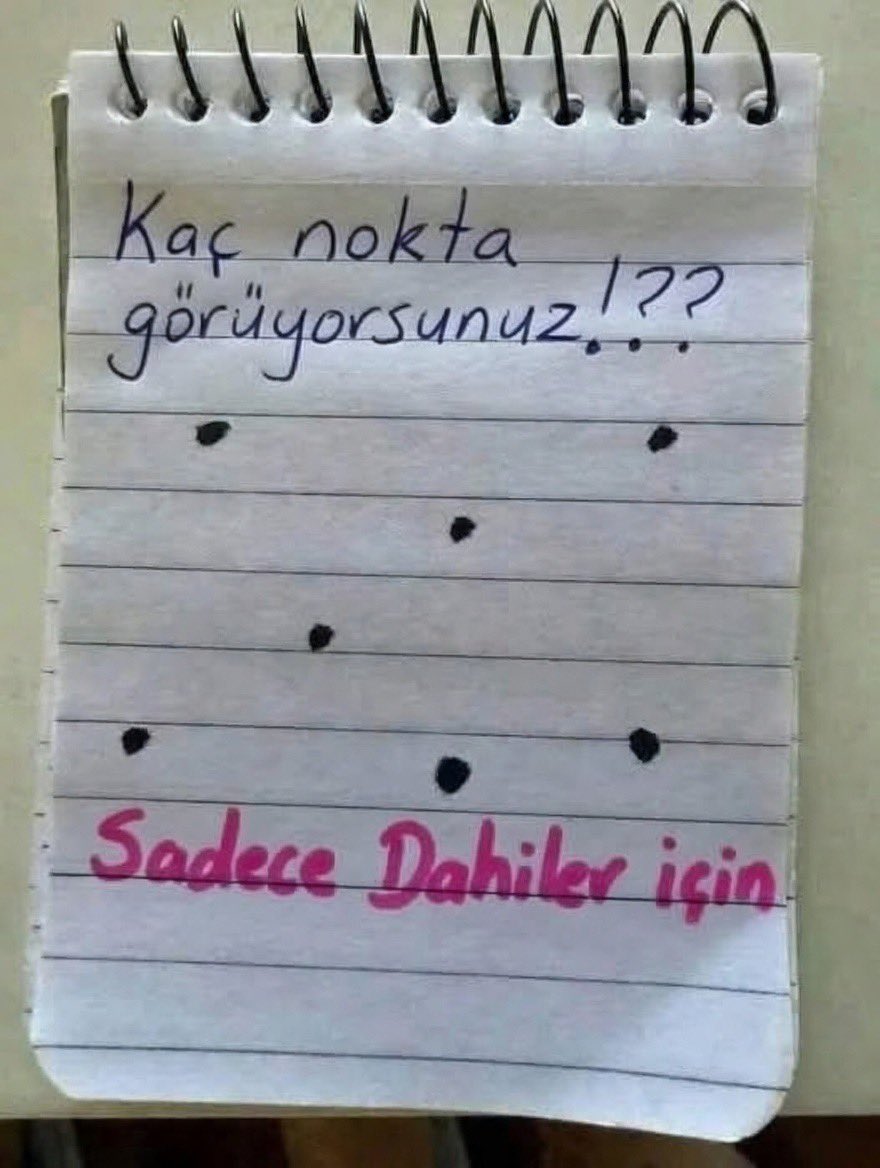 Kaç nokta
görüyorsunuz!??
Sadece Dahiler için